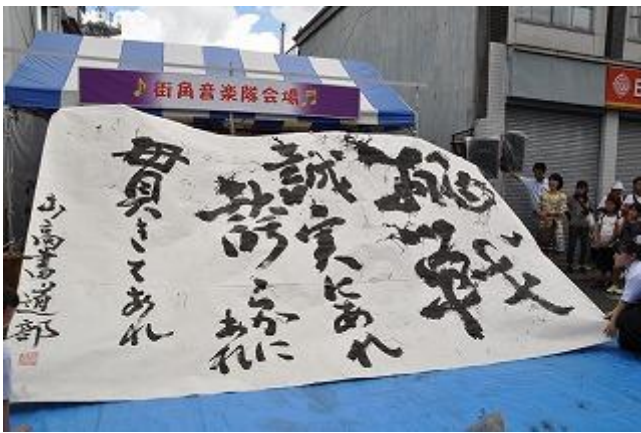 街角音楽隊会場
挑戦
誠実にあれ
誇らかに
あれ
貫きてあれ
山高書道部